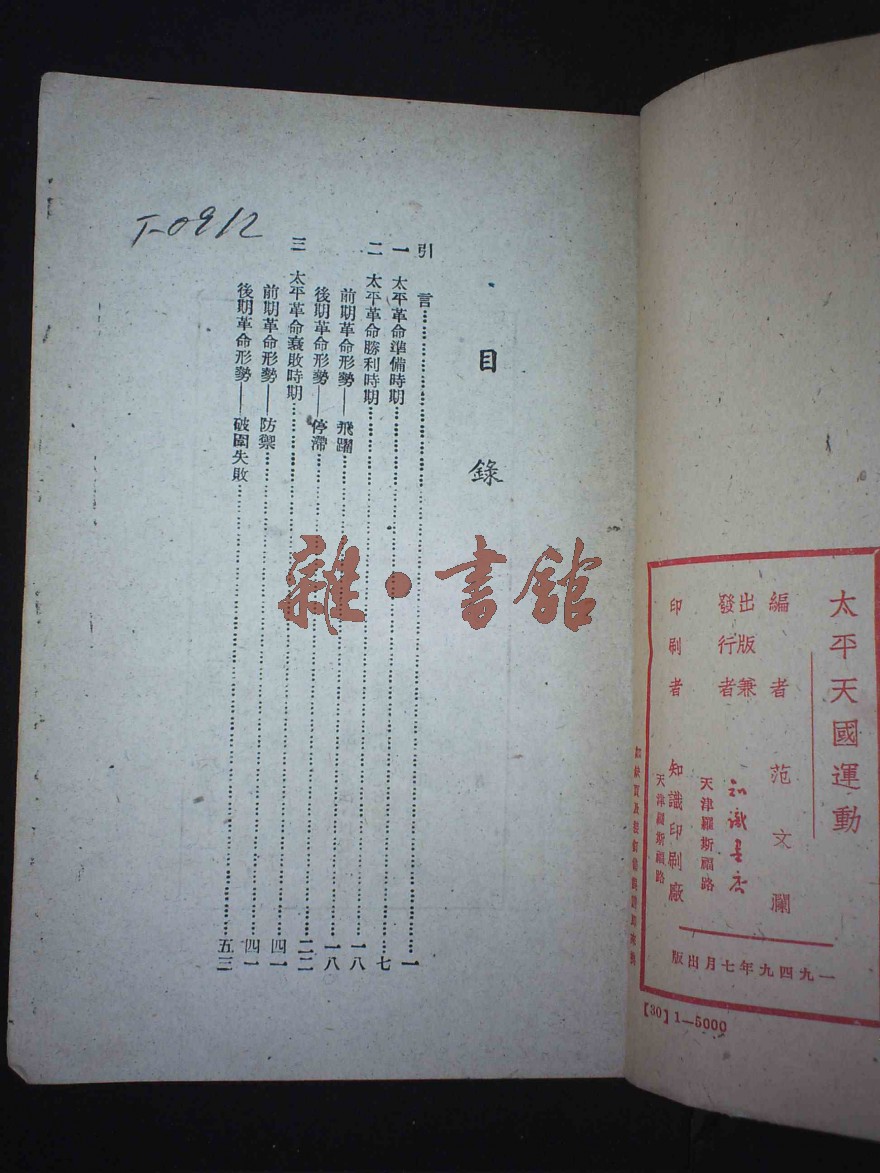 太平天國運動
編者 范文瀾
出版兼發行者 知識書店
天津羅斯福路
印刷者 知識印刷廠
天津羅斯福路
一九四九年七月出版
【30】1—5000
目錄
引言 一
一 太平革命準備時期 七
二 太平革命勝利時期 一八
前期革命形勢——飛躍 一八
後期革命形勢——停滯 二二
三 太平革命衰敗時期 四一
前期革命形勢——防禦 四一
後期革命形勢——破圍失敗 五三
T-0912
雜·書館